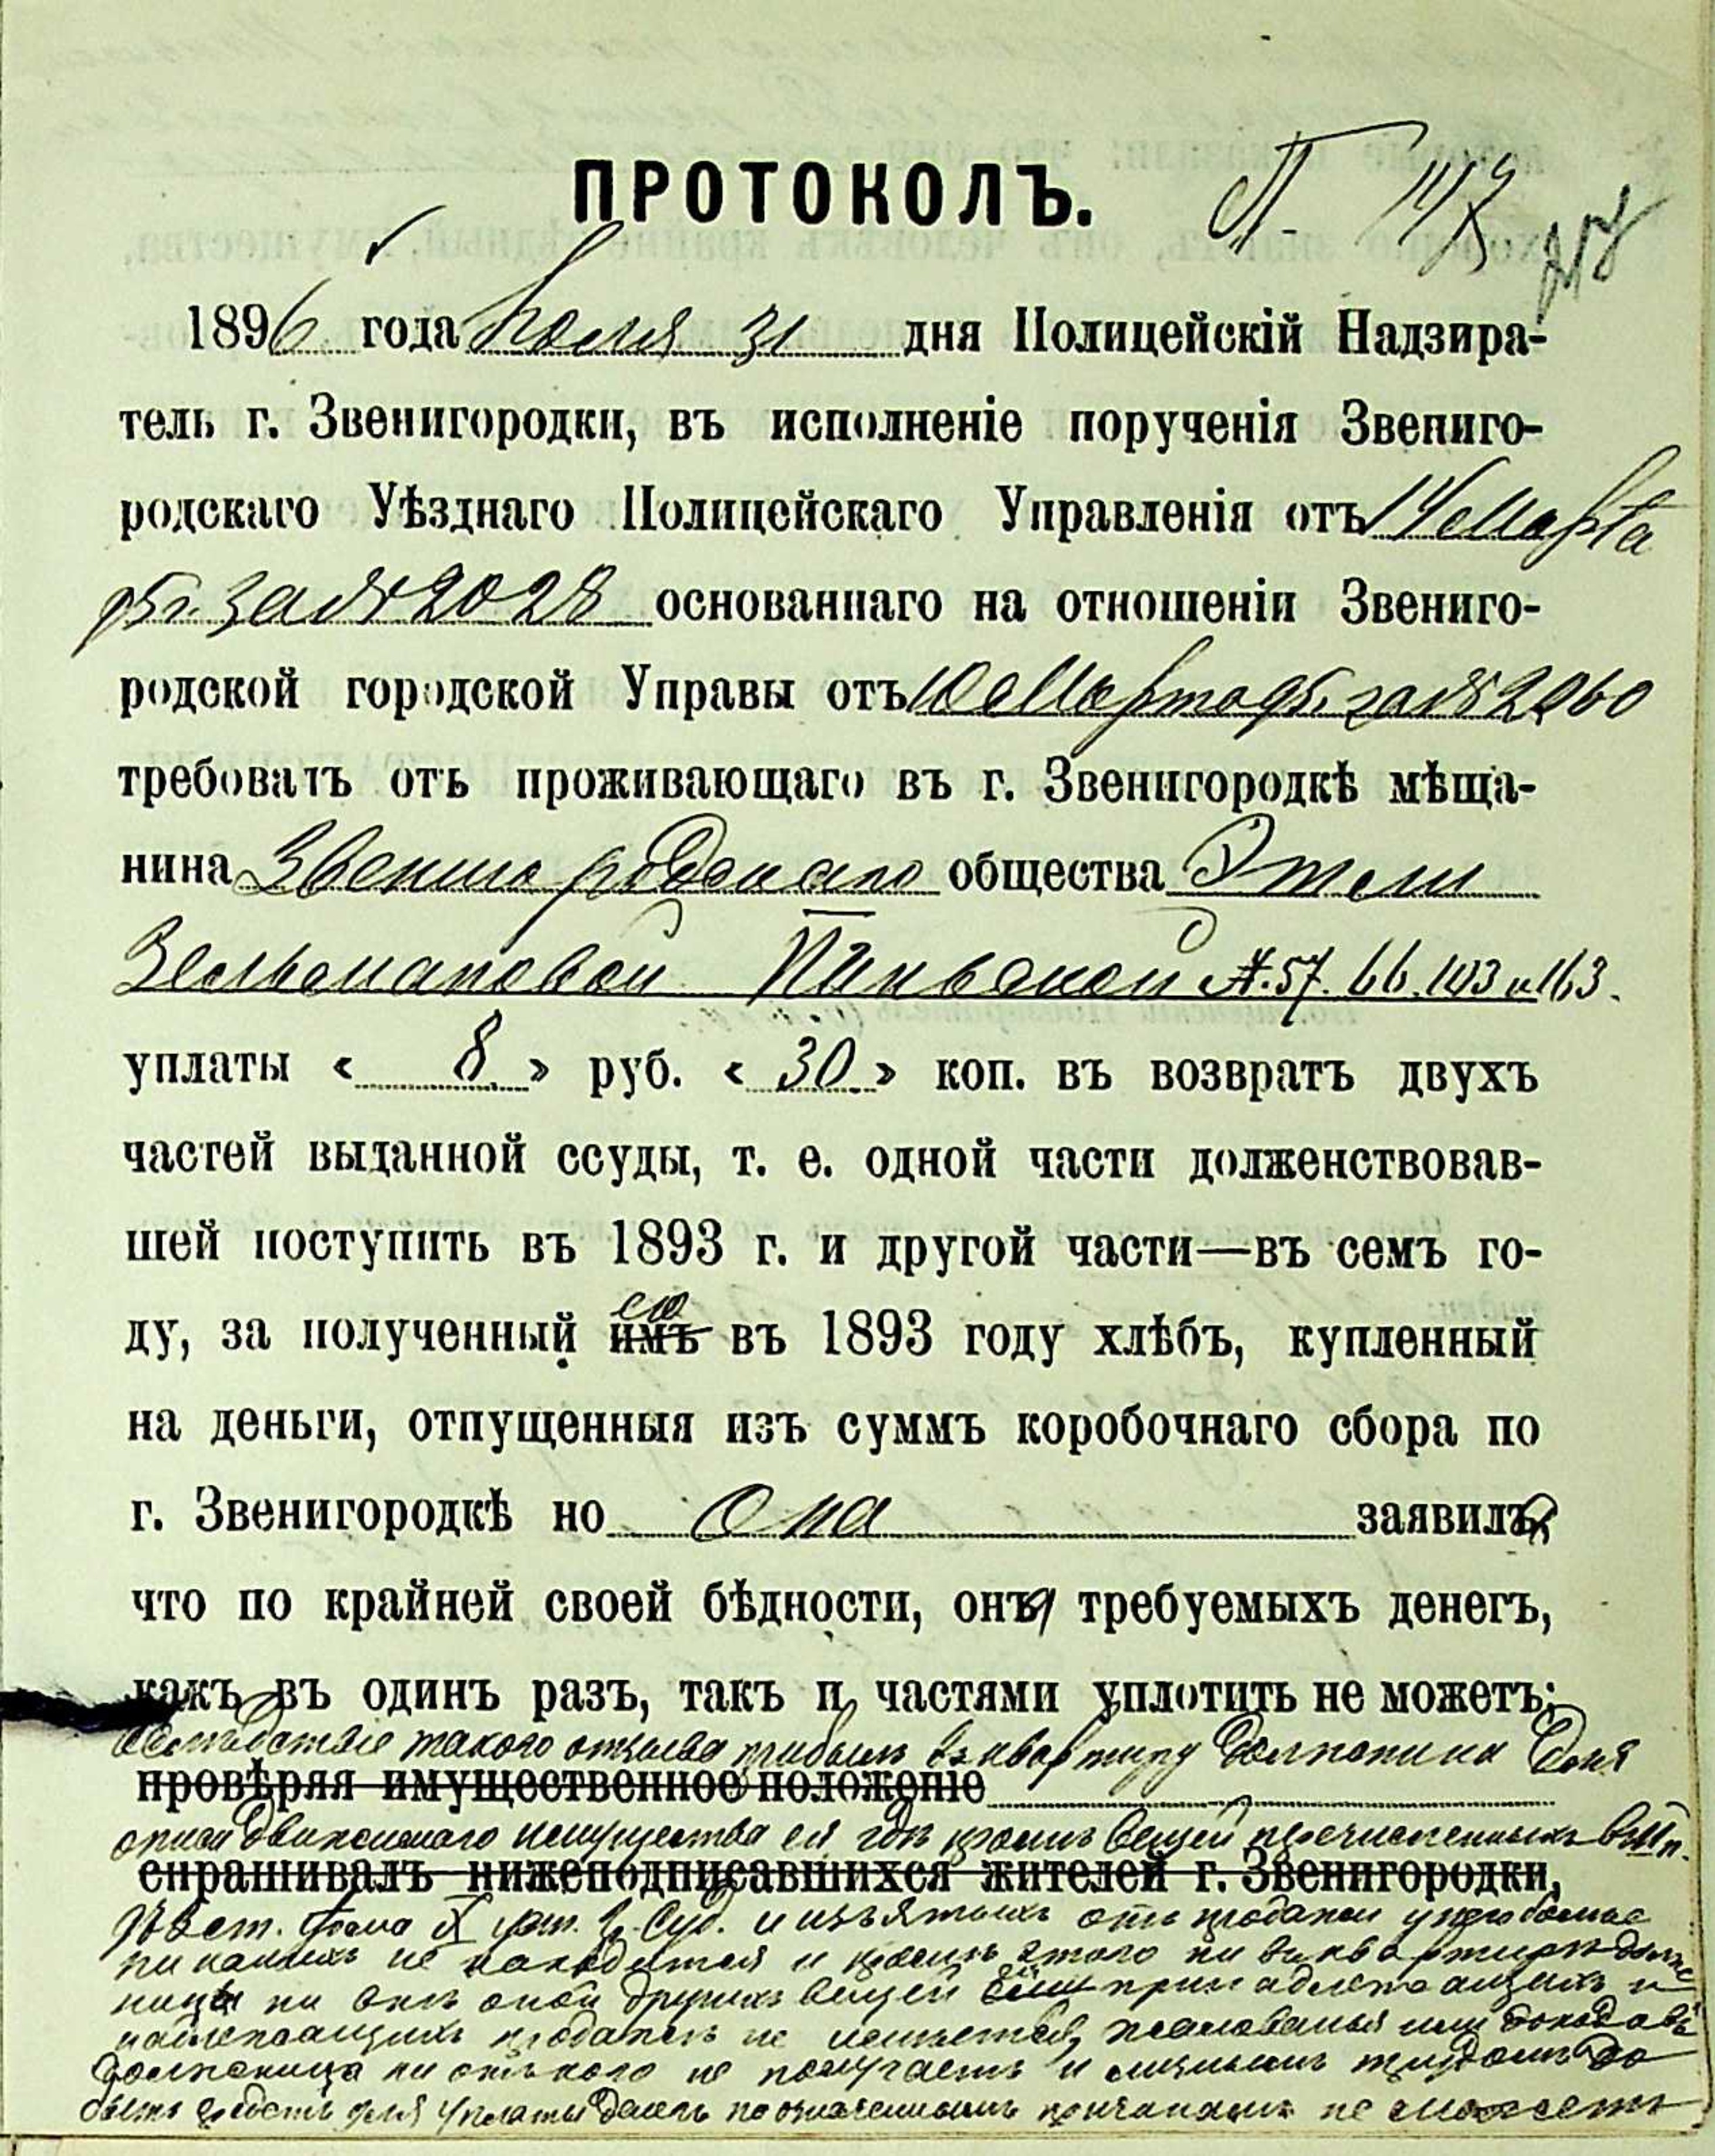 ПРОТОКОЛЪ. П. 143
1896 года Іюля 31 дня Полицейскій Надзира-
тель г. Звенигородки, въ исполненіе порученія Звениго-
родскаго Уѣзднаго Полицейскаго Управленія отъ 14 Марта
95 г. за № 2028 основаннаго на отношеніи Звениго-
родской городской Управы отъ 10 Марта 95 г. за № 2060
требовать отъ проживающаго въ г. Звенигородкѣ мѣща-
нина Звенигородскаго общества Этели
Зельмановой Пинской А. 57. 66. 103 и 163.
уплаты « 8 » руб. « 30 » коп. въ возвратъ двухъ
частей выданной ссуды, т. е. одной части долженствовав-
шей поступить въ 1893 г. и другой части—въ семъ го-
ду, за полученный имъ ею въ 1893 году хлѣбъ, купленный
на деньги, отпущенныя изъ суммъ коробочнаго сбора по
г. Звенигородкѣ но она заявила
что по крайней своей бѣдности, она требуемыхъ денегъ,
какъ въ одинъ разъ, такъ и частями уплотить не можетъ;
вслѣдствіе такого отзыва прибылъ въ квартиру должника для
провѣряя имущественное положеніе
описи движимаго имущества ея гдѣ кромѣ вещей перечисленныхъ въ п.
спрашивалъ нижеподписавшихся жителей г. Звенигородки,
ст. тома X Суд. и изъятыхъ отъ продажи у него больше
никакихъ не находится и кромѣ этого ни въ квартирѣ долж
ницы ни внѣ оной другихъ вещей принадлежащихъ и
подлежащихъ продажѣ не имѣется, жалованья или доходовъ
должница ни отъ кого не получаетъ и личнымъ трудомъ до
быть средствъ для уплаты денегъ по означеннымъ причинамъ не можетъ